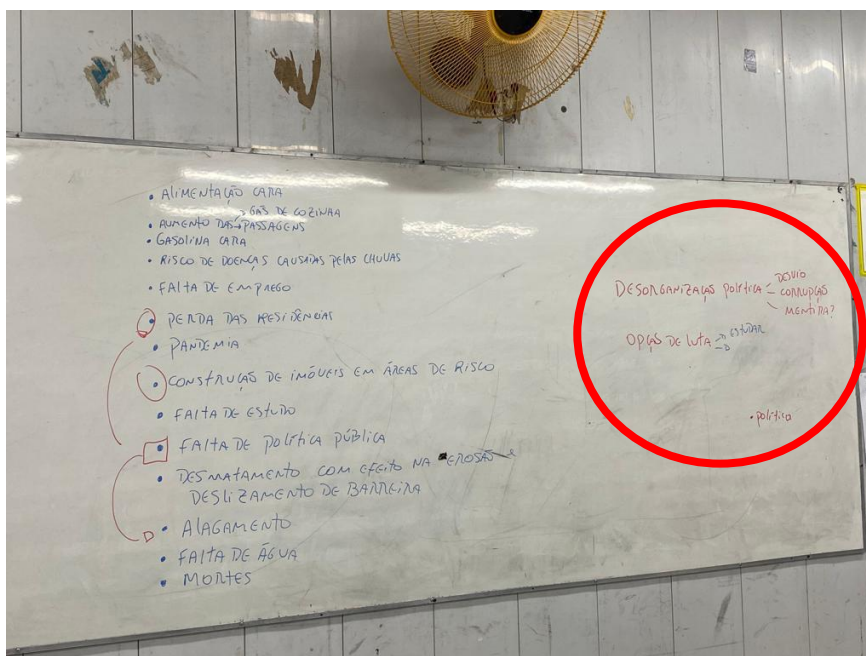 • ALIMENTAÇÃO CARA
→ GÁS DE COZINHA
• AUMENTO DAS → PASSAGENS
• GASOLINA CARA
• RISCO DE DOENÇAS CAUSADAS PELAS CHUVAS
• FALTA DE EMPREGO
• PERDA DAS RESIDÊNCIAS
• PANDEMIA
• CONSTRUÇÃO DE IMÓVEIS EM ÁREAS DE RISCO
• FALTA DE ESTUDO
• FALTA DE POLÍTICA PÚBLICA
• DESMATAMENTO COM EFEITO NA EROSÃO E
DESLIZAMENTO DE BARREIRA
• ALAGAMENTO
• FALTA DE ÁGUA
• MORTES
DESVIO
DESORGANIZAÇÃO POLÍTICA – CORRUPÇÃO
MENTIRA?
OPÇÃO DE LUTA → ESTUDAR
• POLÍTICA